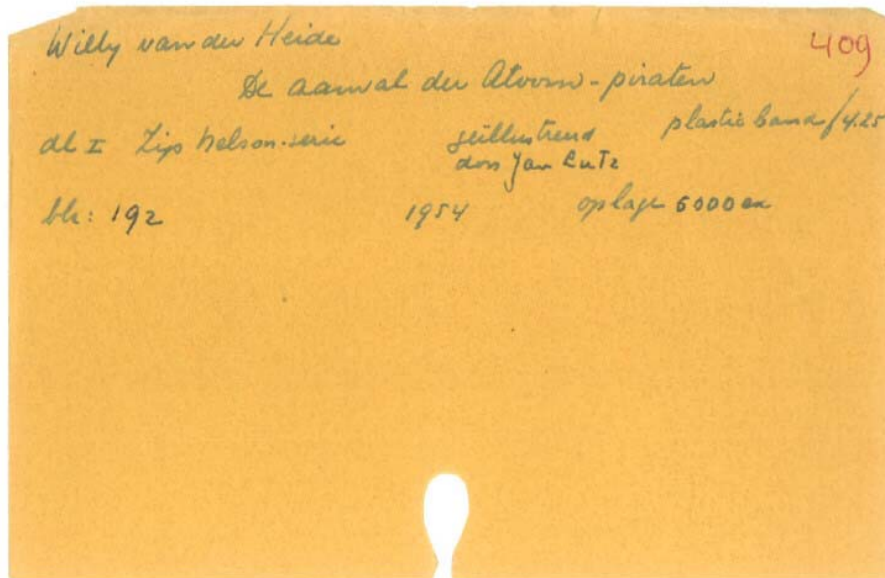 Willy van der Heide 409
De aanval der Atoom-piraten
dl I Zip Nelson-serie geïllustreerd plastic band f4.25
door Jan Lutz
blz: 192 1954 oplage 6000 ex